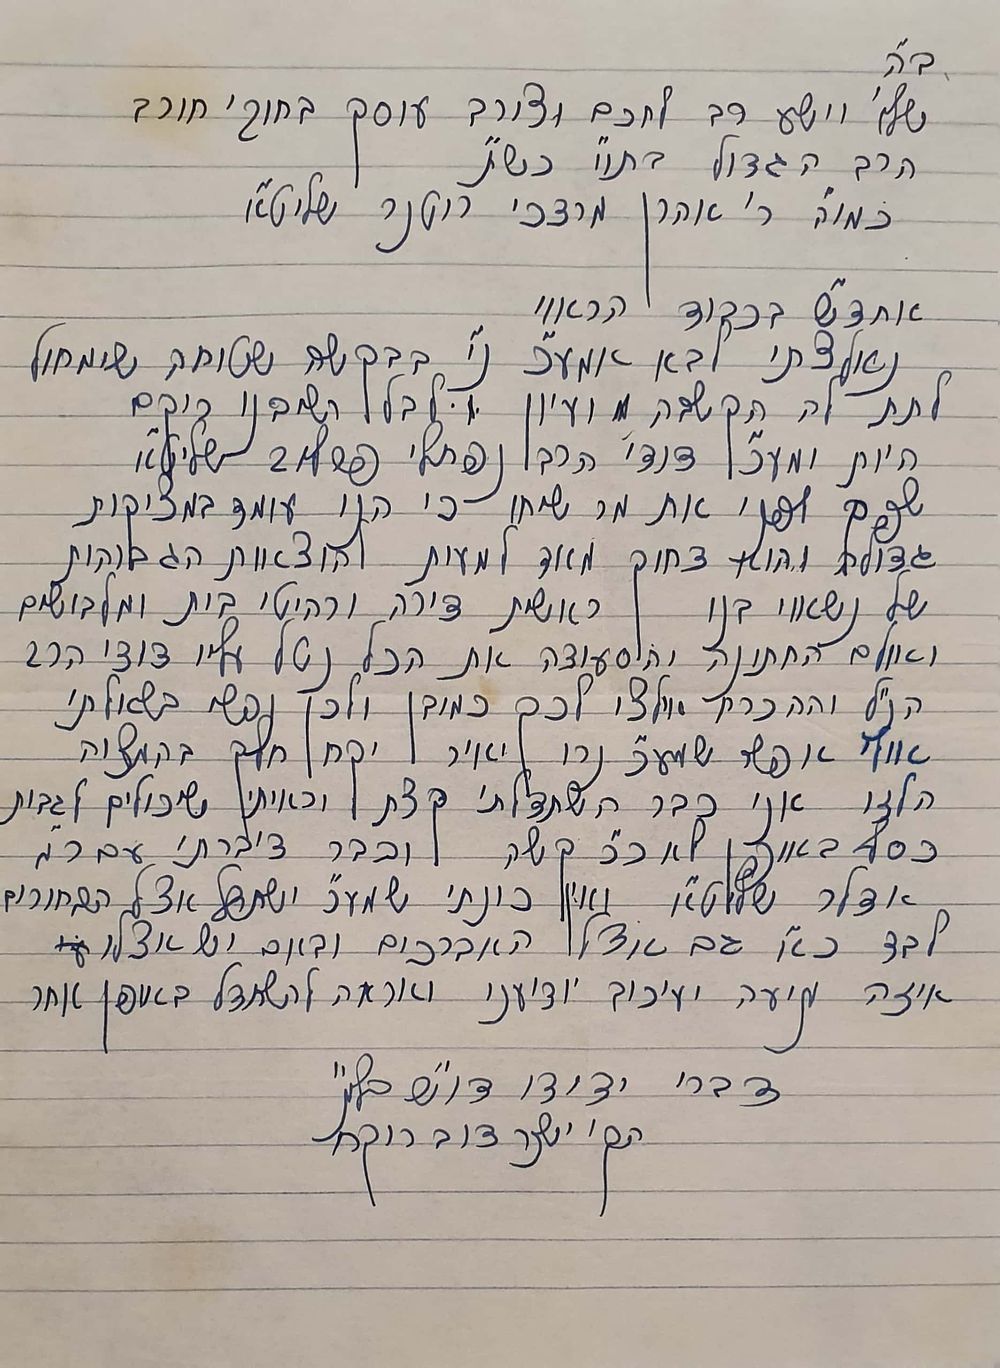 ב"ה
שלו' וישע רב לחכם וצורב עוסק בחוקי חורב
הרב הגדול בתו"י כש"ת
כמוה' ר' אהרן מרדכי רוטנר שליט"א
אחדש"ה בכבוד הראוי
נאלצתי לבא אמע"כ נ"י בבקשה שטוחה שימחול
לתת לה הקשבה ועיון לבל השיבנו ריקם
היות ומע"כ דנדי' הרב נפתלי שליט"א
את מר שיחו כי הנו עומד במציקות
גדולה והוא דחוק מאוד למעות להוצאות הגבוהות
של נשואי בנו ראשית דירה ורהיטי בית ומלבושים
ואולם החתונה והסעודה את הכל נטל עליו דודי הרב
הנ"ל וההכרח אילצו לכך כמובן ולכן נפשי בשאלתי
אולי אפשר שמע"כ נרו יאיר יקח חלק בהמצוה
הלזו אני כבר השתדלתי קצת וראיתי שיכולים לגבות
כסף באופן לא כ"כ קשה וכבר דיברתי עם ר"מ
אדלר שליט"א ואין כונתי שמע"כ ישתדל אצל הבחורים
לבד כ"א גם אצל האברכים ובאם יש אצלו
איזה מניעה ועיכוב יודיעני ואראה להשתדל באופן אחר
דברי ידידו דו"ש בלו"נ
הק' ישכר דוב רוקח